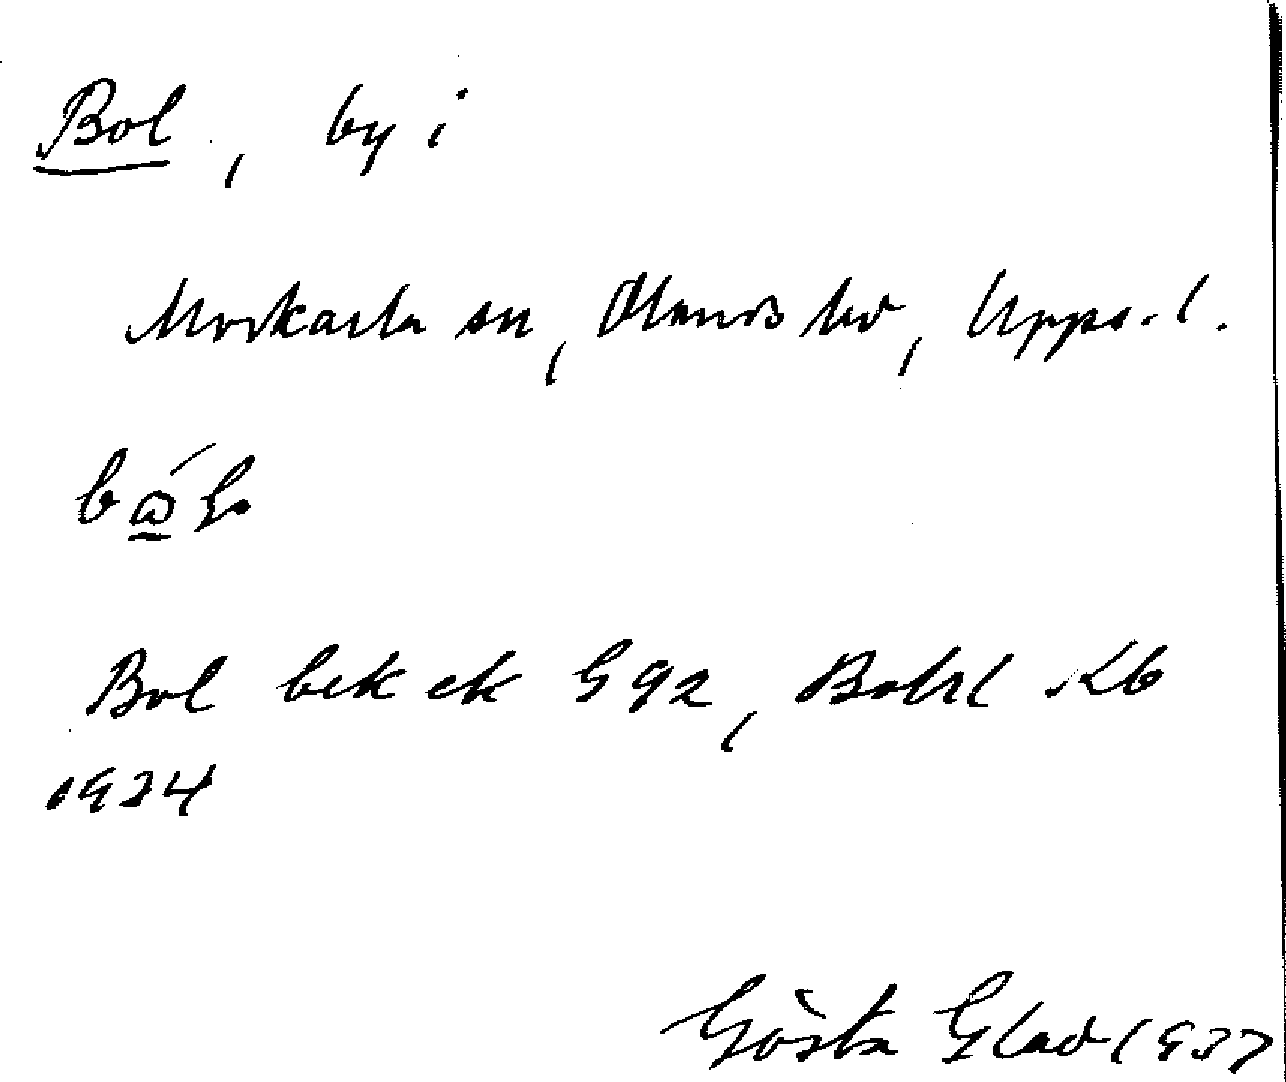 Bol, by i
Morkarla sn, Olands hd, Upps. l.
Bol bek ek G 92, Bohl Kb
1934
Gösta Glad 1937